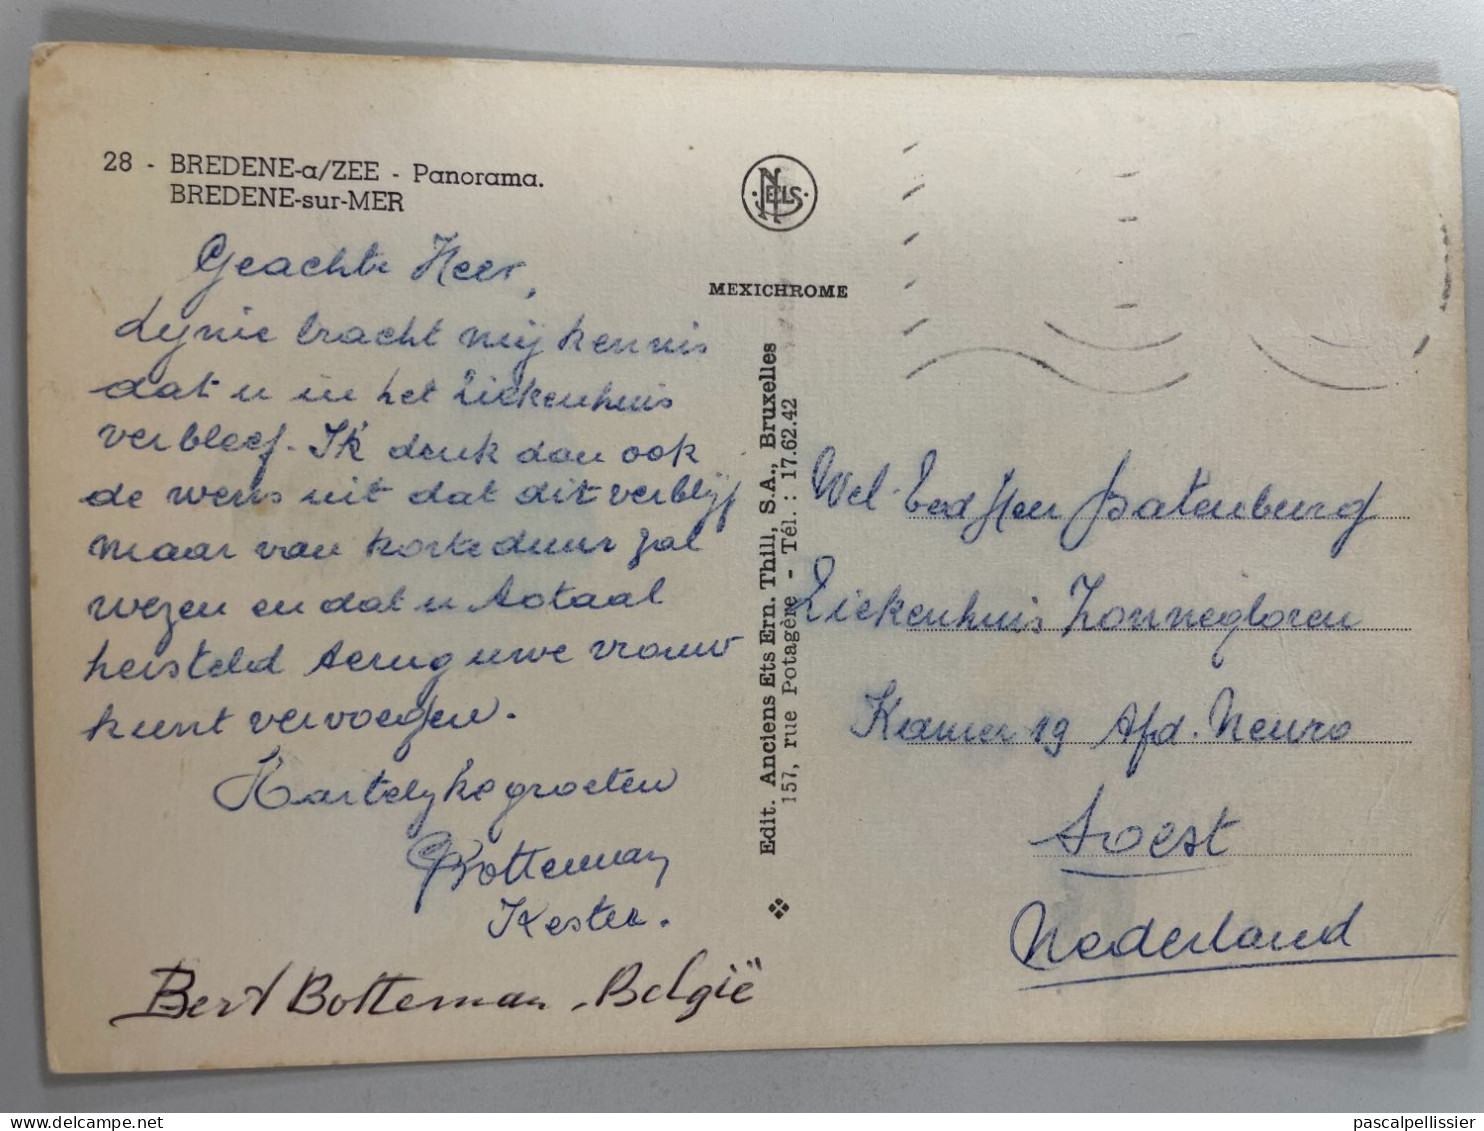 28 - BREDENE-a/ZEE - Panorama.
BREDENE-sur-MER
Geachte Heer,
bracht mij kennis
dat u in het Ziekenhuis
verbleef. Ik denk dan ook
de wens uit dat dit verblijf
maar van korte duur zal
wezen en dat u totaal
hersteld terug uwe vrouw
kunt vervoegen.
Hartelijke groeten
Botteman
Kester.
Bert Botteman - België"
NELS
MEXICHROME
Edit. Anciens Ets Ern. Thill, S.A., Bruxelles
157, rue Potagère - Tél. : 17.62.42
Wel Ed Heer Batenburg
Ziekenhuis Zonnegloren
Kamer 19 Afd. Neuro
Soest
Nederland
pascalpellissier